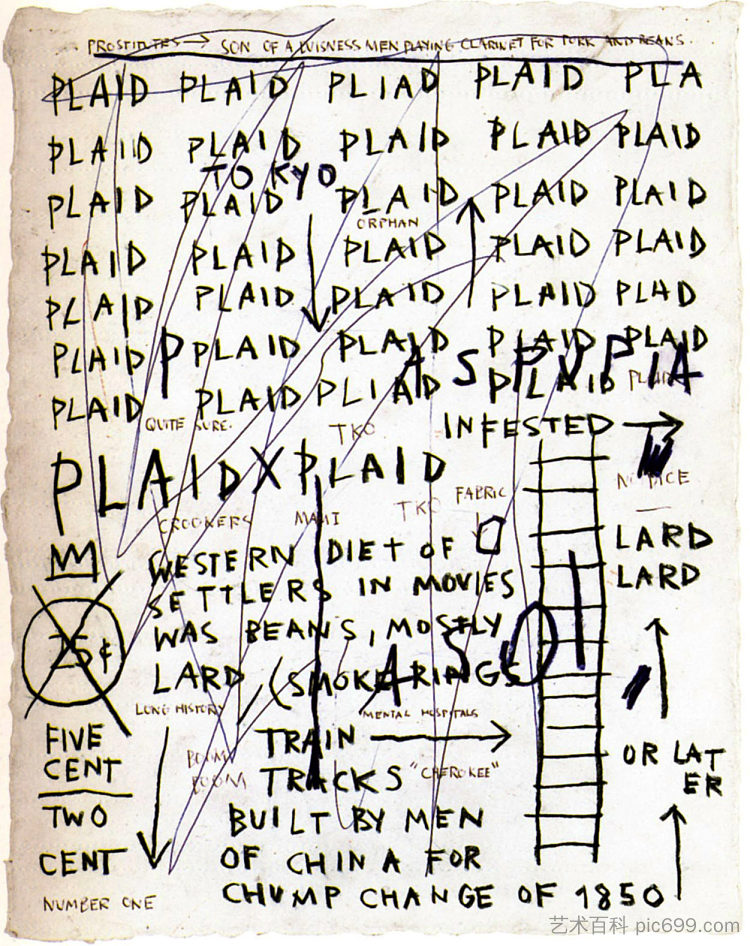 PROSTITUTES → SON OF A WISNESS MEN PLAYING CLARINET FOR PORK AND BEANS.
PLAID PLAID PLIAD PLAID PLA
PLAID PLAID PLAID PLAID PLAID
TOKYO
PLAID PLAID PLAID PLAID PLAID
ORPHAN
PLAID PLAID PLAID PLAID PLAID
PLAID PLAID PLAID PLAID PLAD
PLAID P PLAID PLAID PLAID PLAID
A S P V P I A
PLAID PLAID PLIAD PLAID PLAID
QUITE SURE. TKO INFESTED →
PLAID X PLAID
TKO FABRIC
CROOKERS MAUI
WESTERN DIET OF
SETTLERS IN MOVIES
WAS BEANS, MOSTLY
LARD (SMOKE RINGS
LARD
LARD
25¢
A S O
LONG HISTORY MENTAL HOSPITALS
FIVE
CENT
TWO
CENT
NUMBER ONE
BOOM
BOOM
TRAIN →
TRACKS "CHEROKEE"
BUILT BY MEN
OF CHINA FOR
CHUMP CHANGE OF 1850
OR LAT
ER
艺术百科 pic699.com